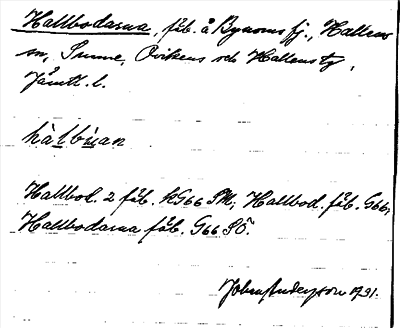 Hallbodarna, fäb. å Bynoms fj., Hallens
sn, Sunne, Ovikens och Hallens tg,
Jämtl. l.
hàlbu̇an
Hallbod. 2 fäb. KG66 SM; Hallbod. fäb. G66;
Hallbodarna fäb. G66 SÖ.
Johan Andersson 1931.